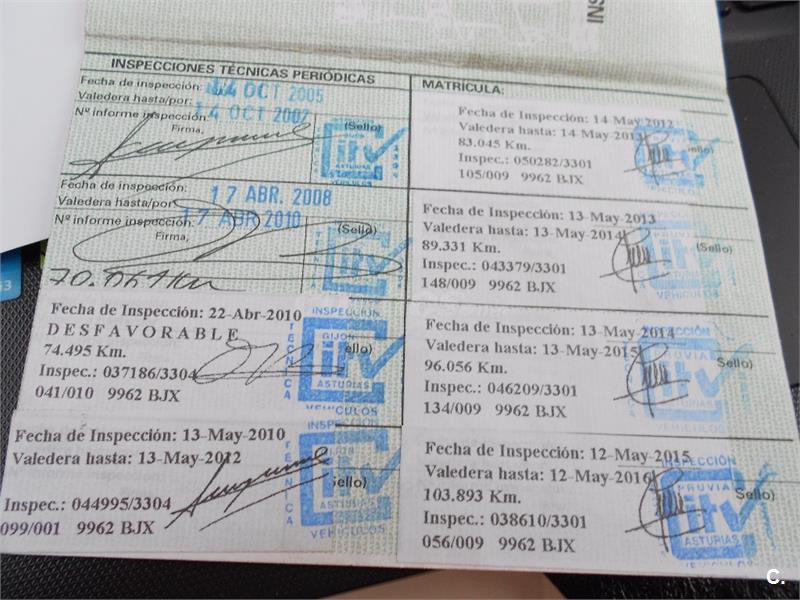 INS
INSPECCIONES TÉCNICAS PERIÓDICAS
Fecha de inspección: 14 OCT 2005
Valedera hasta/por: 14 OCT 2007
Nº informe inspección:
Firma,
(Sello)
itv
VEHICULOS
Fecha de inspección: 17 ABR. 2008
Valedera hasta/por: 17 ABR 2010
Nº informe inspección:
Firma,
(Sello)
Fecha de Inspección: 22-Abr-2010
DESFAVORABLE
74.495 Km.
Inspec.: 037186/3304
041/010 9962 BJX
ello)
INSPECCIÓN
GIJON
TECNICA
itv
ASTURIAS
VEHICULOS
Fecha de Inspección: 13-May-2010
Valedera hasta: 13-May-2012
Inspec.: 044995/3304
099/001 9962 BJX
ello)
INSP
TECNICA
itv
ASTURIAS
VEHICULOS
MATRÍCULA:
Fecha de Inspección: 14-May-2012
Valedera hasta: 14-May-2013
83.045 Km.
Inspec.: 050282/3301
105/009 9962 BJX
itv
Fecha de Inspección: 13-May-2013
Valedera hasta: 13-May-2014
89.331 Km.
Inspec.: 043379/3301
148/009 9962 BJX
(Sello)
itv
VEHICULOS
Fecha de Inspección: 13-May-2014
Valedera hasta: 13-May-2015
96.056 Km.
Inspec.: 046209/3301
134/009 9962 BJX
Sello)
PRUVIA
itv
ASTURIAS
VEHICULOS
Fecha de Inspección: 12-May-2015
Valedera hasta: 12-May-2016
103.893 Km.
Inspec.: 038610/3301
056/009 9962 BJX
Sello)
INSPECCIÓN
PRUVIA
itv
ASTURIAS
C.